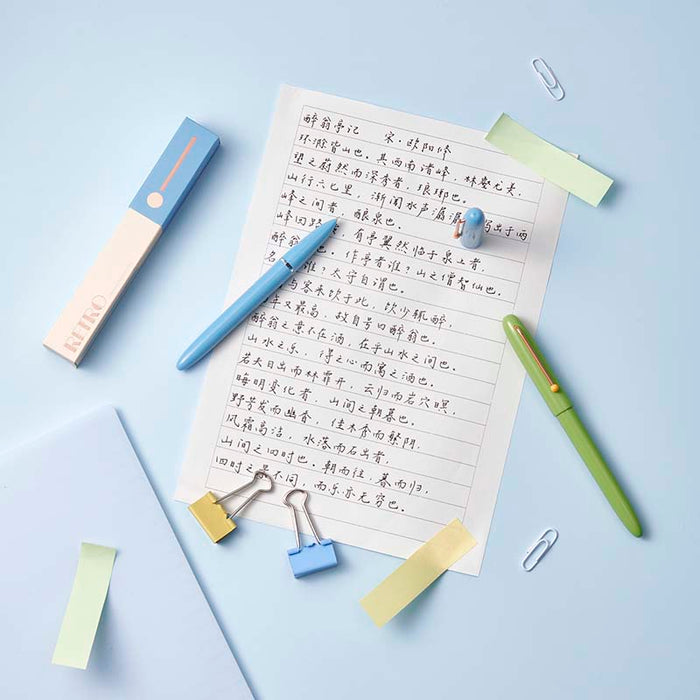 醉翁亭记 宋·欧阳修
环滁皆山也。其西南诸峰,林壑尤美,
望之蔚然而深秀者,琅琊也。
山行六七里,渐闻水声潺潺 出于两
峰之间者,酿泉也。
峰回路 ,有亭翼然临于泉上者,
醉翁 也。作亭者谁?山之僧智仙也。
名 谁?太守自谓也。
与客来饮于此,饮少辄醉,
年又最高,故自号曰醉翁也。
醉翁之意不在酒,在乎山水之间也。
山水之乐,得之心而寓之酒也。
若夫日出而林霏开,云归而岩穴暝,
晦明变化者,山间之朝暮也。
野芳发而幽香,佳木秀而繁阴,
风霜高洁,水落而石出者,
山间之四时也。朝而往,暮而归,
四时之景不同,而乐亦无穷也。
RETRO